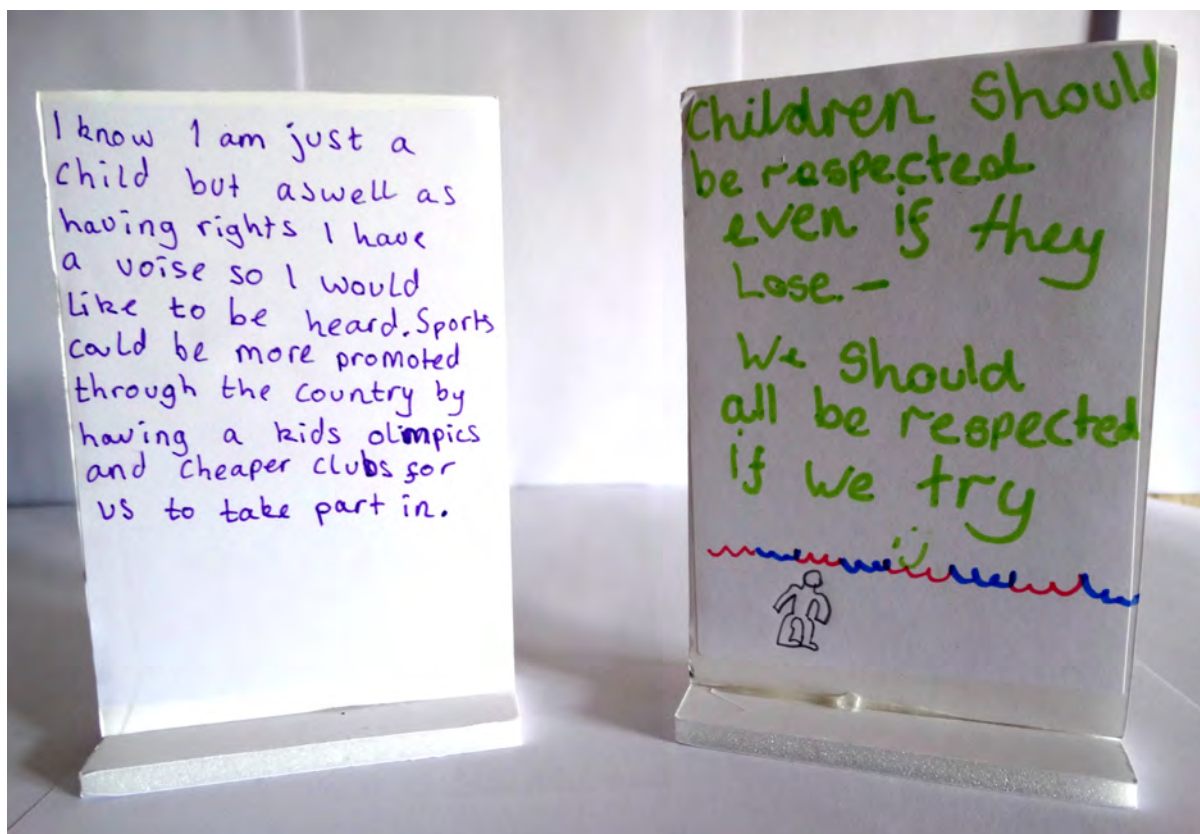 I know I am just a
child but aswell as
having rights I have
a voise so I would
like to be heard. Sports
could be more promoted
through the country by
having a kids olimpics
and cheaper clubs for
us to take part in.
Children Should
be respected
even if they
Lose. -
We Should
all be respected
if we try
:)